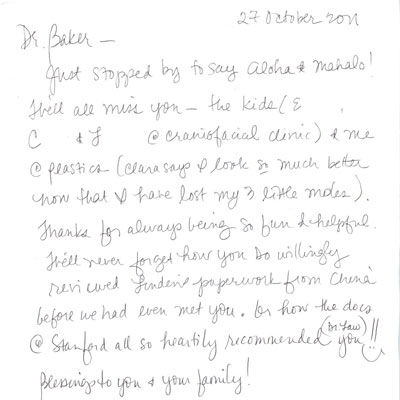 27 October 2011
Dr. Baker —
Just stopped by to say Aloha & Mahalo!
We'll all miss you — the kids (E
C & L @ craniofacial clinic) & me
@ plastics (Clara says I look so much better
now that I have lost my 3 little moles).
Thanks for always being so fun & helpful.
We'll never forget how you so willingly
reviewed Linden's paperwork from China
before we had even met you. Or how the docs
@ Stanford all so heartily recommended you!!
(Dr. Law)
Blessings to you & your family!